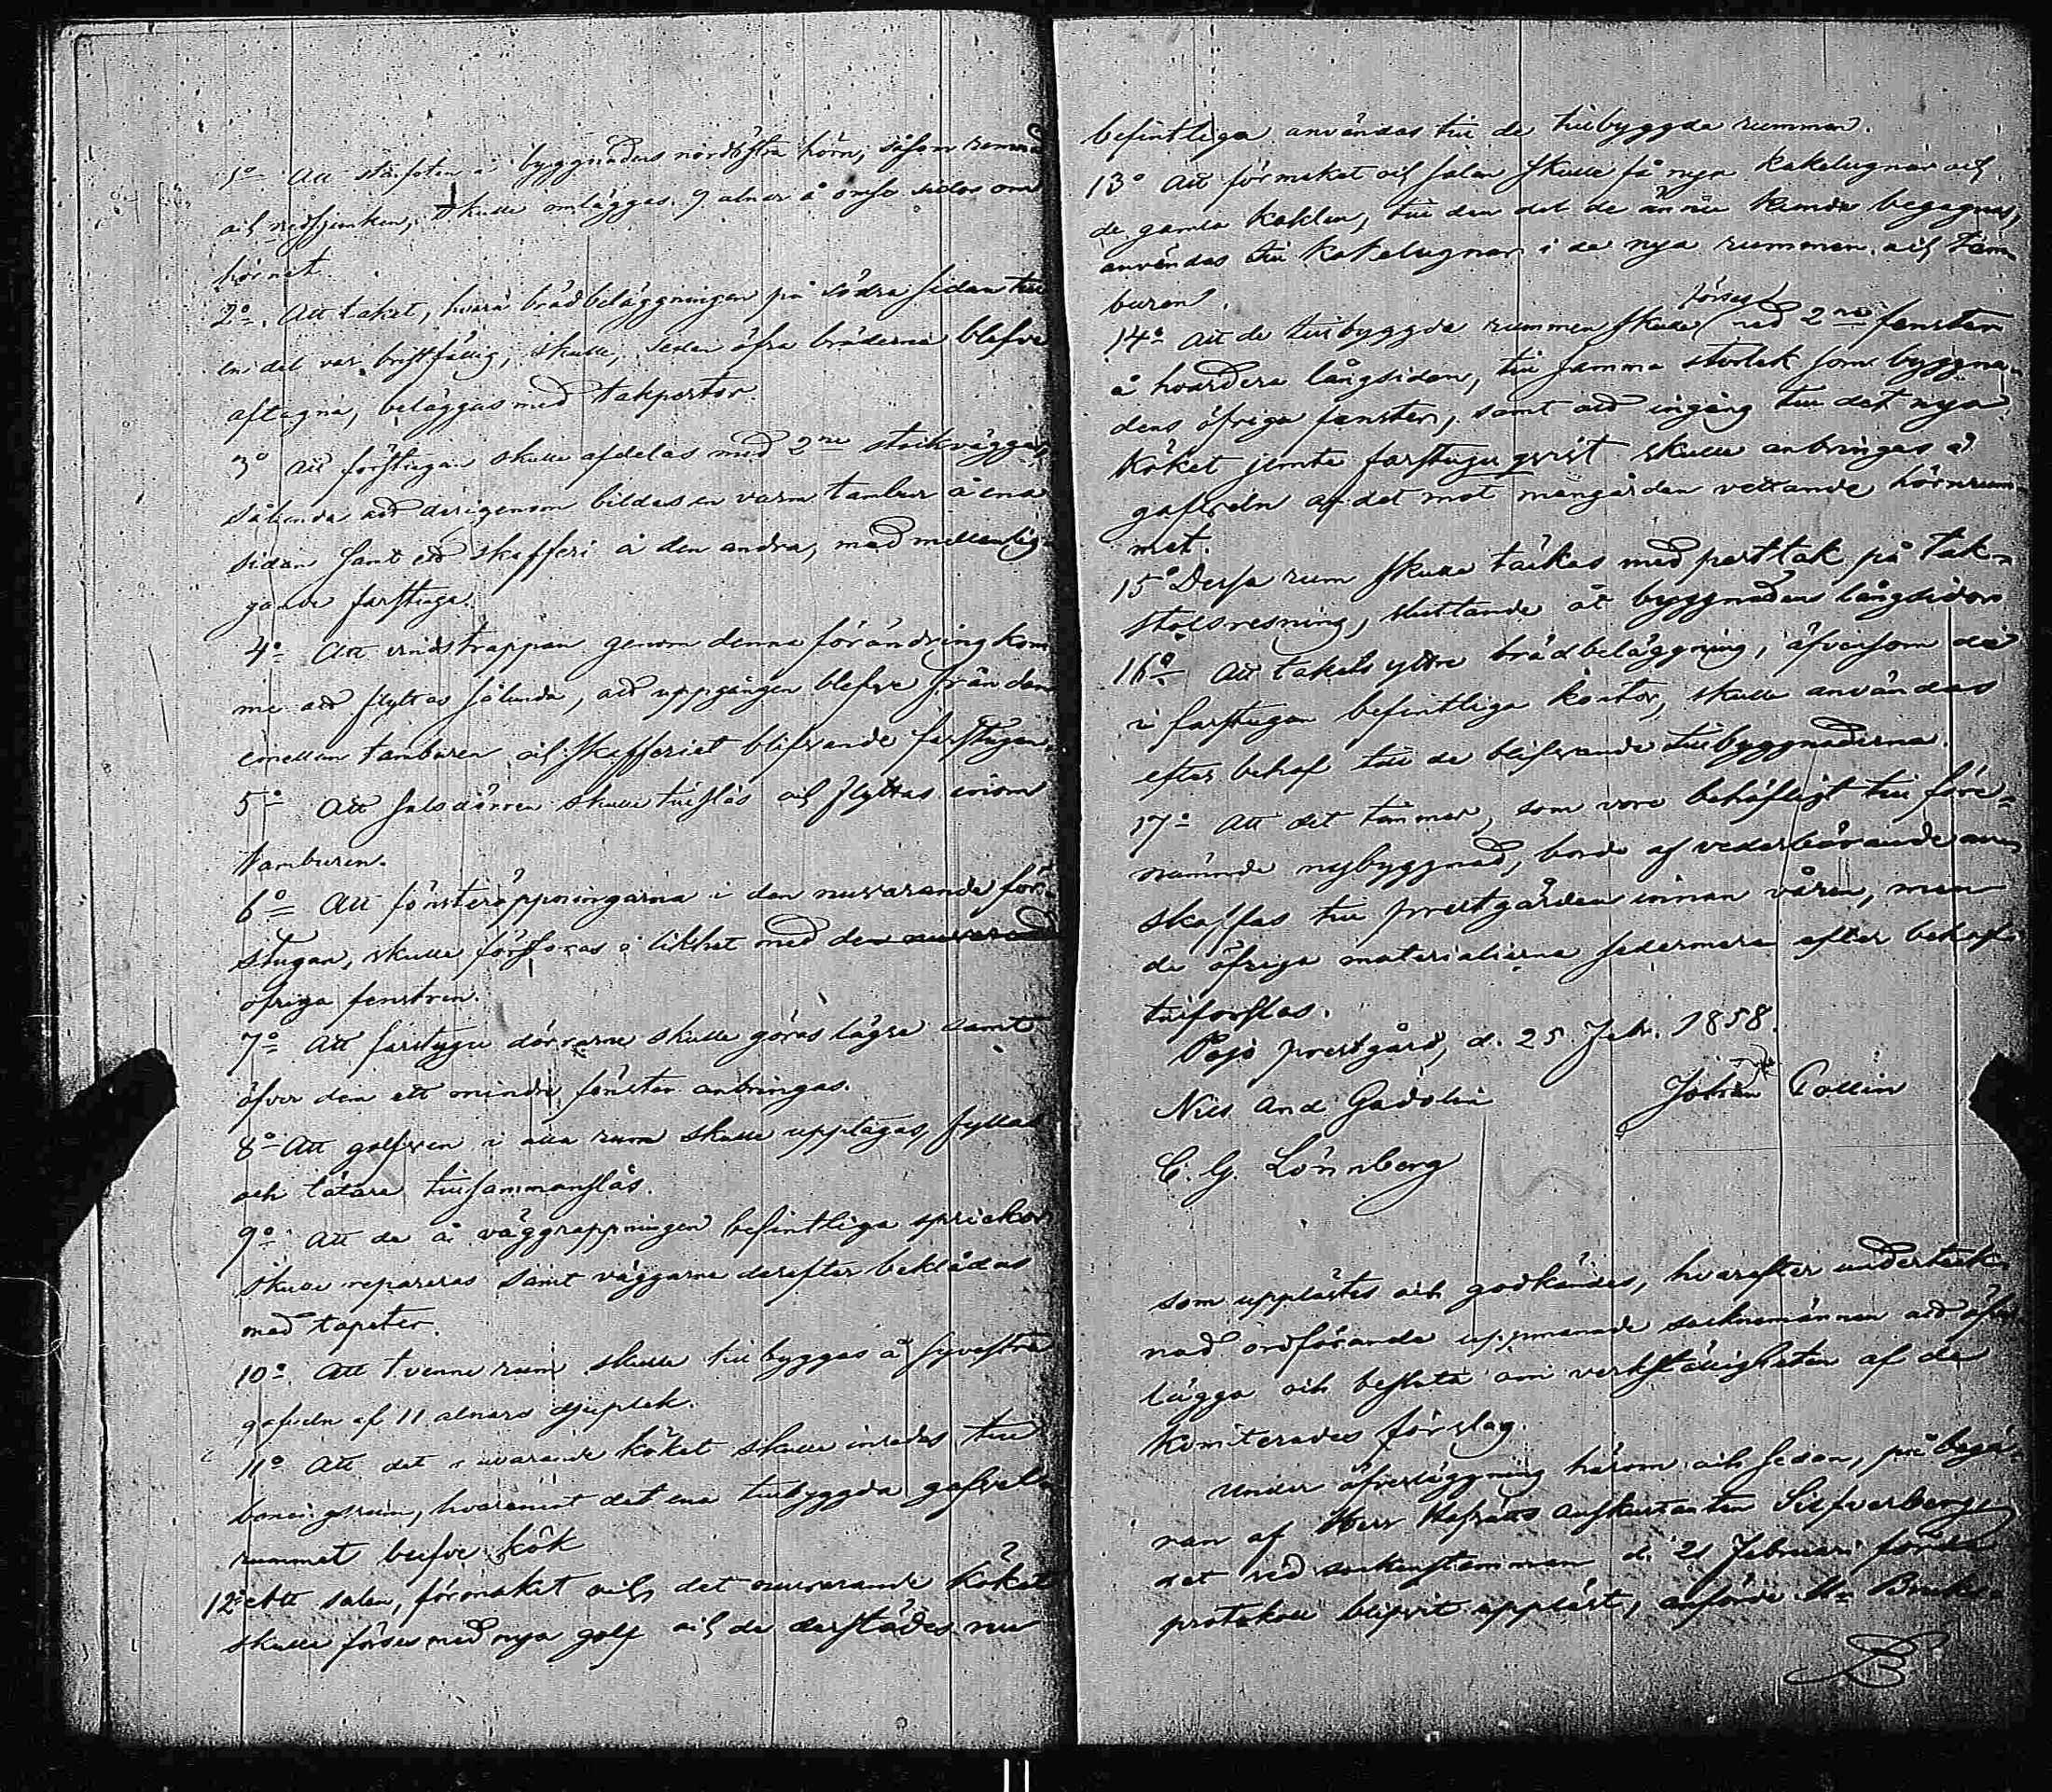 1o Att stenfoten i byggnadens nordöstra hörn, såsom remnad
och nedsjunken, skulle omläggas 9 alnar å ömse sidor om
hörnet.
2o Att taket, hvarå brädbeläggningen på södra sidan till
en del var bristfällig, skulle, sedan öfra bräderna blefve
aftagna, beläggas med takpertor.
3o Att förstugan skulle afdelas med 2ne stockväggar,
sålunda att derigenom bildas en varm tambur å ena
sidan samt ett skafferi å den andra, med mellanlig-
gande farstuga.
4o Att vindstrappan genom denna förändring kom-
me att flyttas sålunda, att uppgången blefve från den
emellan tamburen och skafferiet blifvande farstugan.
5o Att salsdörren skulle tillslås och flyttas inom
tamburen.
6o Att fönsteröppningarna i den nuvarande för-
stugan, skulle förstoras i likhet med de nuvarande
öfriga fenstren.
7o Att farstugu dörrarne skulle göras lägre samt
öfver dem ett mindre fönster anbringas.
8o Att golfven i alla rum skulle upptagas, fyllas
och tätare tillsammanslås.
9o Att de å väggrappningen befintliga sprickor
skulle repareras samt väggarne derefter beklädas
med tapeter.
10o Att tvenne rum skulle tillbyggas å sydvestra
gafveln af 11 alnars djuplek.
11o Att det nuvarande köket skulle inredas till
boningsrum, hvaremot det ena tillbyggda gafvel-
rummet blefve kök
12o Att salen, förmaket och det nuvarande köket
skulle förses med nya golf och de derstädes nu
befintliga användas till de tillbyggda rummen.
13o Att förmaket och salen skulle få nya kakelugnar och
de gamla kaklen, till den del de ännu kunde begagnas,
användas till kakelugnar i de nya rummen och tam-
buren.
14o Att de tillbyggda rummen skulle förses med 2ne fenster
å hvardera långsidan, till samma storlek som byggna-
dens öfriga fenster, samt att ingång till det nya
köket jemte farstugu qvist skulle anbringas å
gafveln af det mot mangården vettande hörnrum-
met.
15o Dessa rum skulle täckas med perttak på tak-
stolsresning, sluttande åt byggnadens långsidor
16o Att takets yttre brädbeläggning, äfvensom de
i farstugan befintliga kontor, skulle användas
efter behof till de blifvande tillbyggnaderna.
17o Att det timmer, som vore behöfligt till före-
nämnde nybyggnad, borde af vederbörande an-
skaffas till prestgården innan våren, men
de öfriga materialierna sedermera efter behof
tillforslas.
Pojo prestgård, d. 25 Febr. 1858.
Nils And Gadolin Johan Collin
C. G. Lönnberg
som upplästes och godkändes, hvarefter underteck-
nad ordförande uppmanade socknemännen att öfver-
lägga och besluta om verkställigheten af de
komiterades förslag.
Under öfverläggning härom och sedan, på begä-
ran af Herr Hofrätts Auskultanten Silfverberg
det vid sockenstämman d. 21 Februari förda
protokoll blifvit uppläst, anförde Hr Bruks-